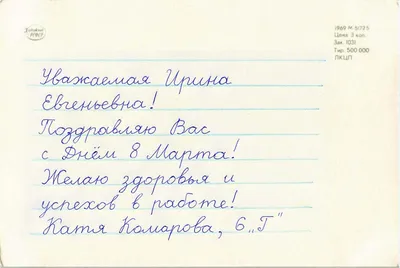 1989 РК 5/72 б
Цена 3 коп.
Зак. 1031
Тир. 500 000
ЛКЦП
Уважаемая Ирина
Евгеньевна!
Поздравляю Вас
с Днём 8 Марта!
Желаю здоровья и
успехов в работе!
Катя Комарова, 6 „Г"